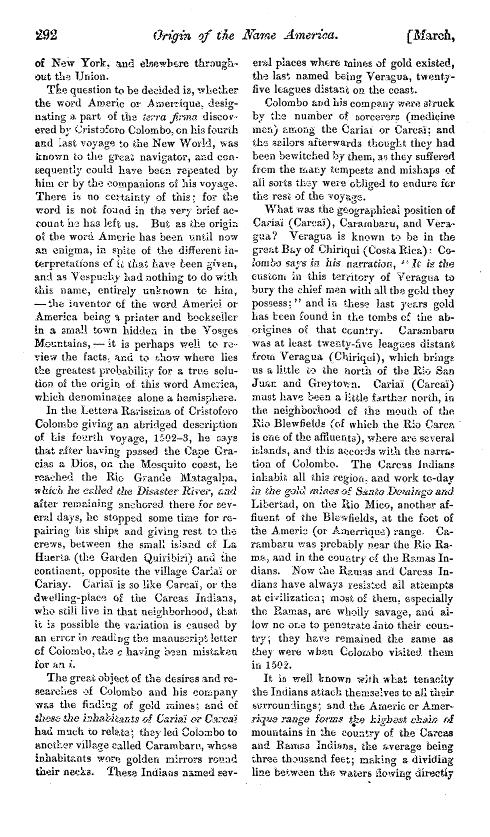 292 Origin of the Name America. [March,
of New York, and elsewhere through-
out the Union.
The question to be decided is, whether
the word Americ or Amerrique, desig-
nating a part of the terra firma discov-
ered by Cristoforo Colombo, on his fourth
and last voyage to the New World, was
known to the great navigator, and con-
sequently could have been repeated by
him or by the companions of his voyage.
There is no certainty of this; for the
word is not found in the very brief ac-
count he has left us. But as the origin
of the word Americ has been until now
an enigma, in spite of the different in-
terpretations of it that have been given,
and as Vespuchy had nothing to do with
this name, entirely unknown to him,
— the inventor of the word Americi or
America being a printer and bookseller
in a small town hidden in the Vosges
Mountains, — it is perhaps well to re-
view the facts, and to show where lies
the greatest probability for a true solu-
tion of the origin of this word America,
which denominates alone a hemisphere.
In the Lettera Rarissima of Cristoforo
Colombo giving an abridged description
of his fourth voyage, 1502-3, he says
that after having passed the Cape Gra-
cias a Dios, on the Mosquito coast, he
reached the Rio Grande Matagalpa,
which he called the Disaster River, and
after remaining anchored there for sev-
eral days, he stopped some time for re-
pairing his ships and giving rest to the
crews, between the small island of La
Huerta (the Garden Quiribiri) and the
continent, opposite the village Cariaï or
Cariay. Cariaï is so like Carcaï, or the
dwelling-place of the Carcas Indians,
who still live in that neighborhood, that
it is possible the variation is caused by
an error in reading the manuscript letter
of Colombo, the c having been mistaken
for an i.
The great object of the desires and re-
searches of Colombo and his company
was the finding of gold mines; and of
these the inhabitants of Cariaï or Carcaï
had much to relate; they led Colombo to
another village called Carambaru, whose
inhabitants wore golden mirrors round
their necks. These Indians named sev-
eral places where mines of gold existed,
the last named being Veragua, twenty-
five leagues distant on the coast.
Colombo and his company were struck
by the number of sorcerers (medicine
men) among the Cariaï or Carcaï; and
the sailors afterwards thought they had
been bewitched by them, as they suffered
from the many tempests and mishaps of
all sorts they were obliged to endure for
the rest of the voyage.
What was the geographical position of
Cariaï (Carcaï), Carambaru, and Vera-
gua? Veragua is known to be in the
great Bay of Chiriqui (Costa Rica): Co-
lombo says in his narration, "It is the
custom in this territory of Veragua to
bury the chief men with all the gold they
possess;" and in these last years gold
has been found in the tombs of the ab-
origines of that country. Carambaru
was at least twenty-five leagues distant
from Veragua (Chiriqui), which brings
us a little to the north of the Rio San
Juan and Greytown. Cariaï (Carcaï)
must have been a little farther north, in
the neighborhood of the mouth of the
Rio Blewfields (of which the Rio Carca
is one of the affluents), where are several
islands, and this accords with the narra-
tion of Colombo. The Carcas Indians
inhabit all this region, and work to-day
in the gold mines of Santo Domingo and
Libertad, on the Rio Mico, another af-
fluent of the Blewfields, at the foot of
the Americ (or Amerrique) range. Ca-
rambaru was probably near the Rio Ra-
ma, and in the country of the Ramas In-
dians. Now the Ramas and Carcas In-
dians have always resisted all attempts
at civilization; most of them, especially
the Ramas, are wholly savage, and al-
low no one to penetrate into their coun-
try; they have remained the same as
they were when Colombo visited them
in 1502.
It is well known with what tenacity
the Indians attach themselves to all their
surroundings; and the Americ or Amer-
rique range forms the highest chain of
mountains in the country of the Carcas
and Ramas Indians, the average being
three thousand feet; making a dividing
line between the waters flowing directly